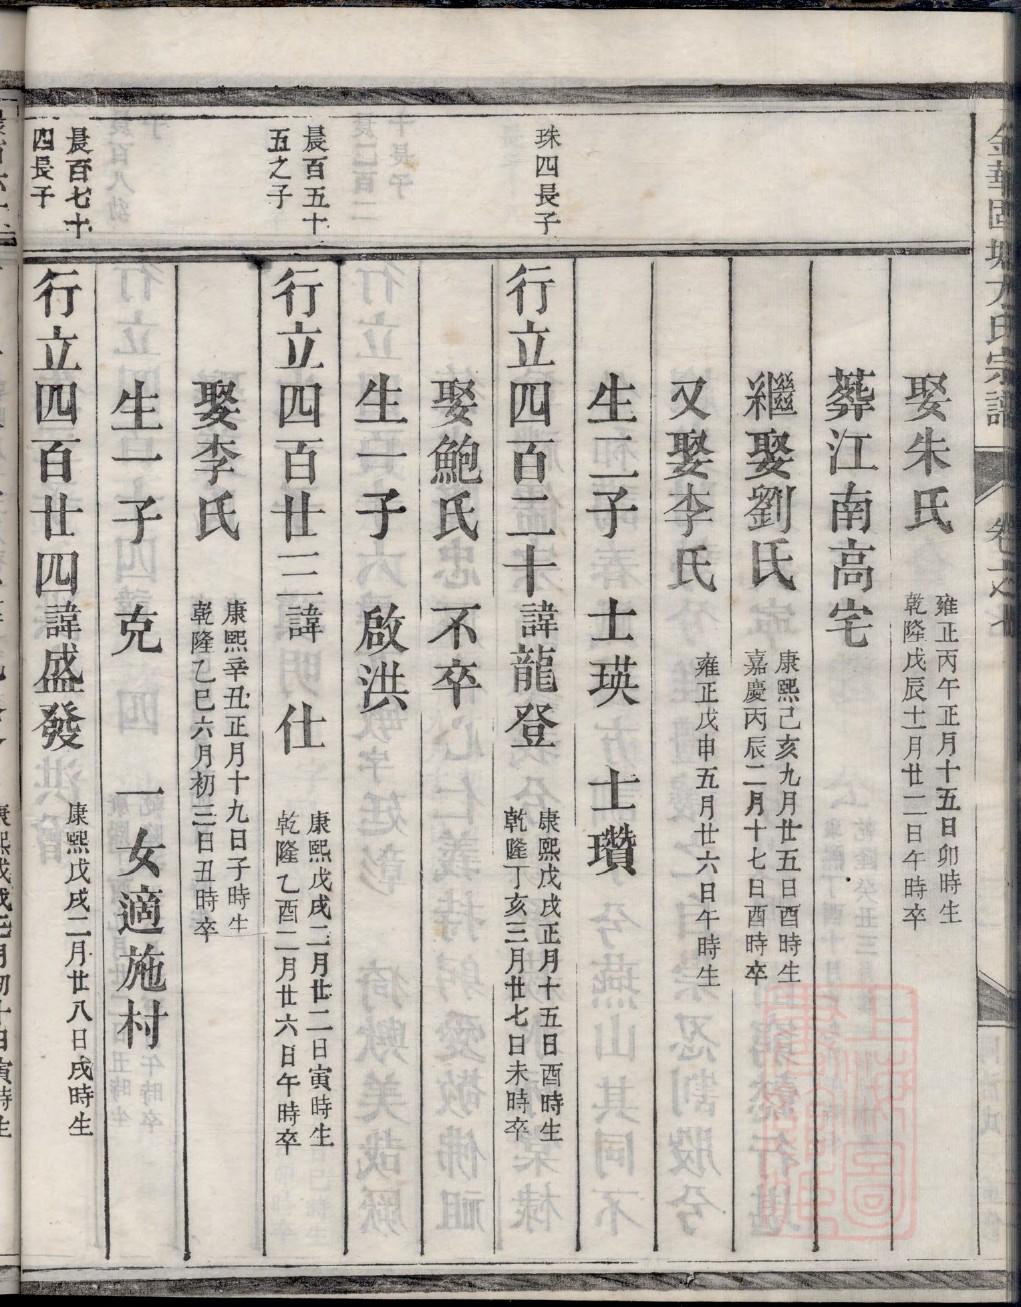 金華固塘方氏宗譜
卷二之七
娶朱氏
雍正丙午正月十五日卯時生
乾隆戊辰十一月廿二日午時卒
葬江南高宅
繼娶劉氏
康熙己亥九月廿五日酉時生
嘉慶丙辰二月十七日酉時卒
又娶李氏
雍正戊申五月廿六日午時生
生二子 士瑛 士瓚
珠四長子
行立四百二十諱龍登
康熙戊戌正月十五日酉時生
乾隆丁亥三月廿七日未時卒
娶鮑氏 不卒
生一子 啟洪
晨百五十
五之子
行立四百廿三諱 仕
康熙戊戌二月廿二日寅時生
乾隆乙酉二月廿六日午時卒
娶李氏
康熙辛丑正月十九日子時生
乾隆乙巳六月初三日丑時卒
生一子 克 一女適施村
晨百七十
四長子
行立四百廿四諱盛發
康熙戊戌二月廿八日戌時生